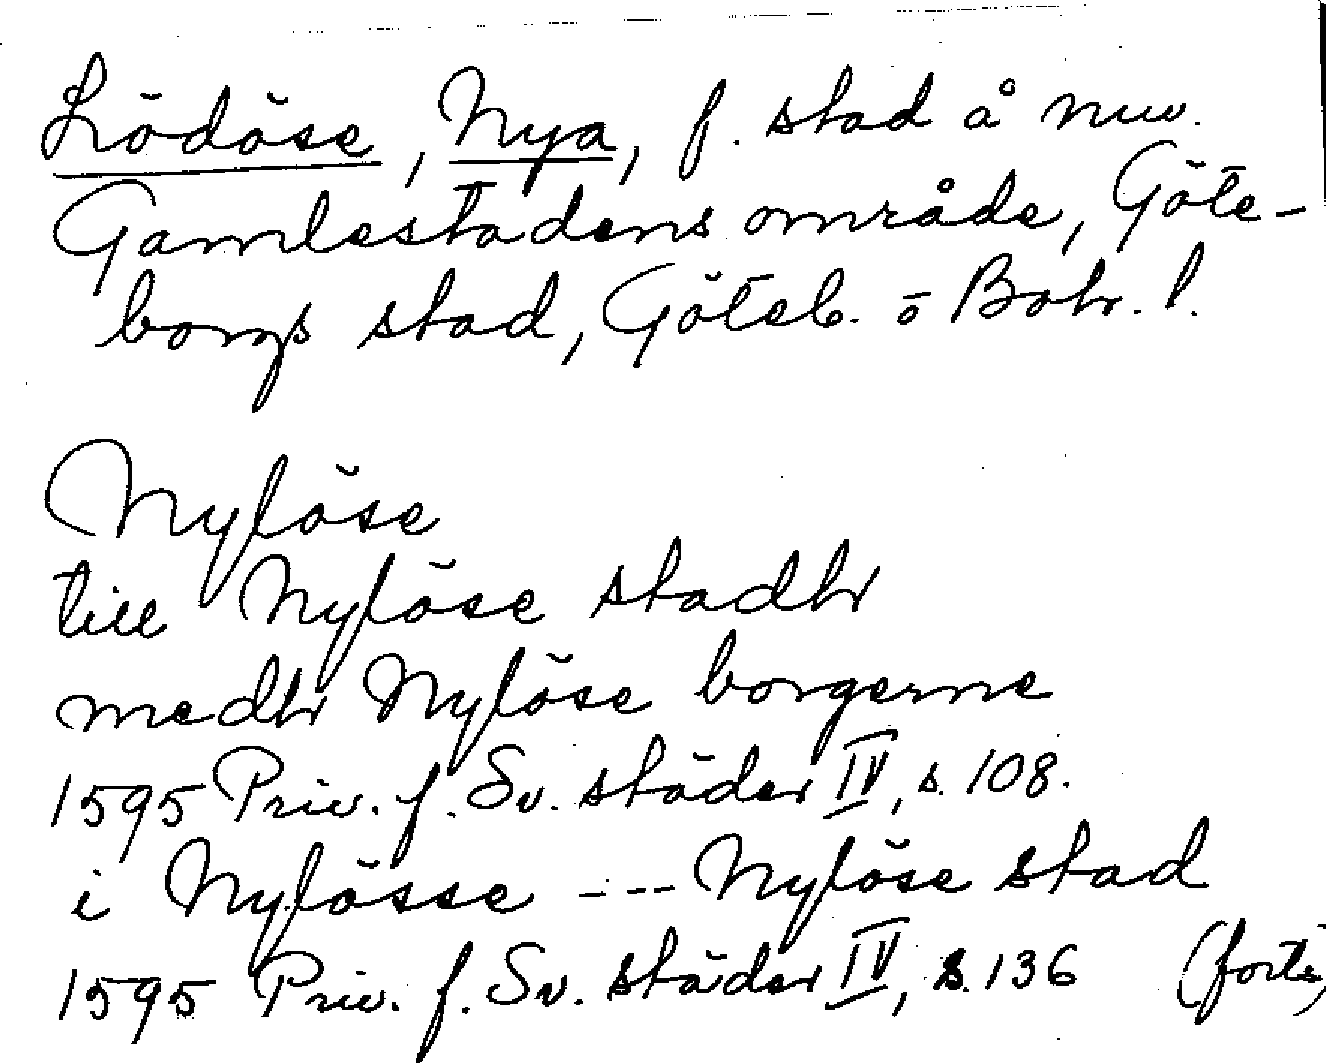 Lödöse, Nya, f. stad å nuv.
Gamlestadens område, Göte-
borgs stad, Göteb. o Boh. l.
Nylöse
till Nylöse stadh
medh Nylöse borgerne
1595 Priv. f. Sv. städer IV, s. 108.
i Nylösse --- Nylöse stad
1595 Priv. f. Sv. städer IV, s. 136 (forts)